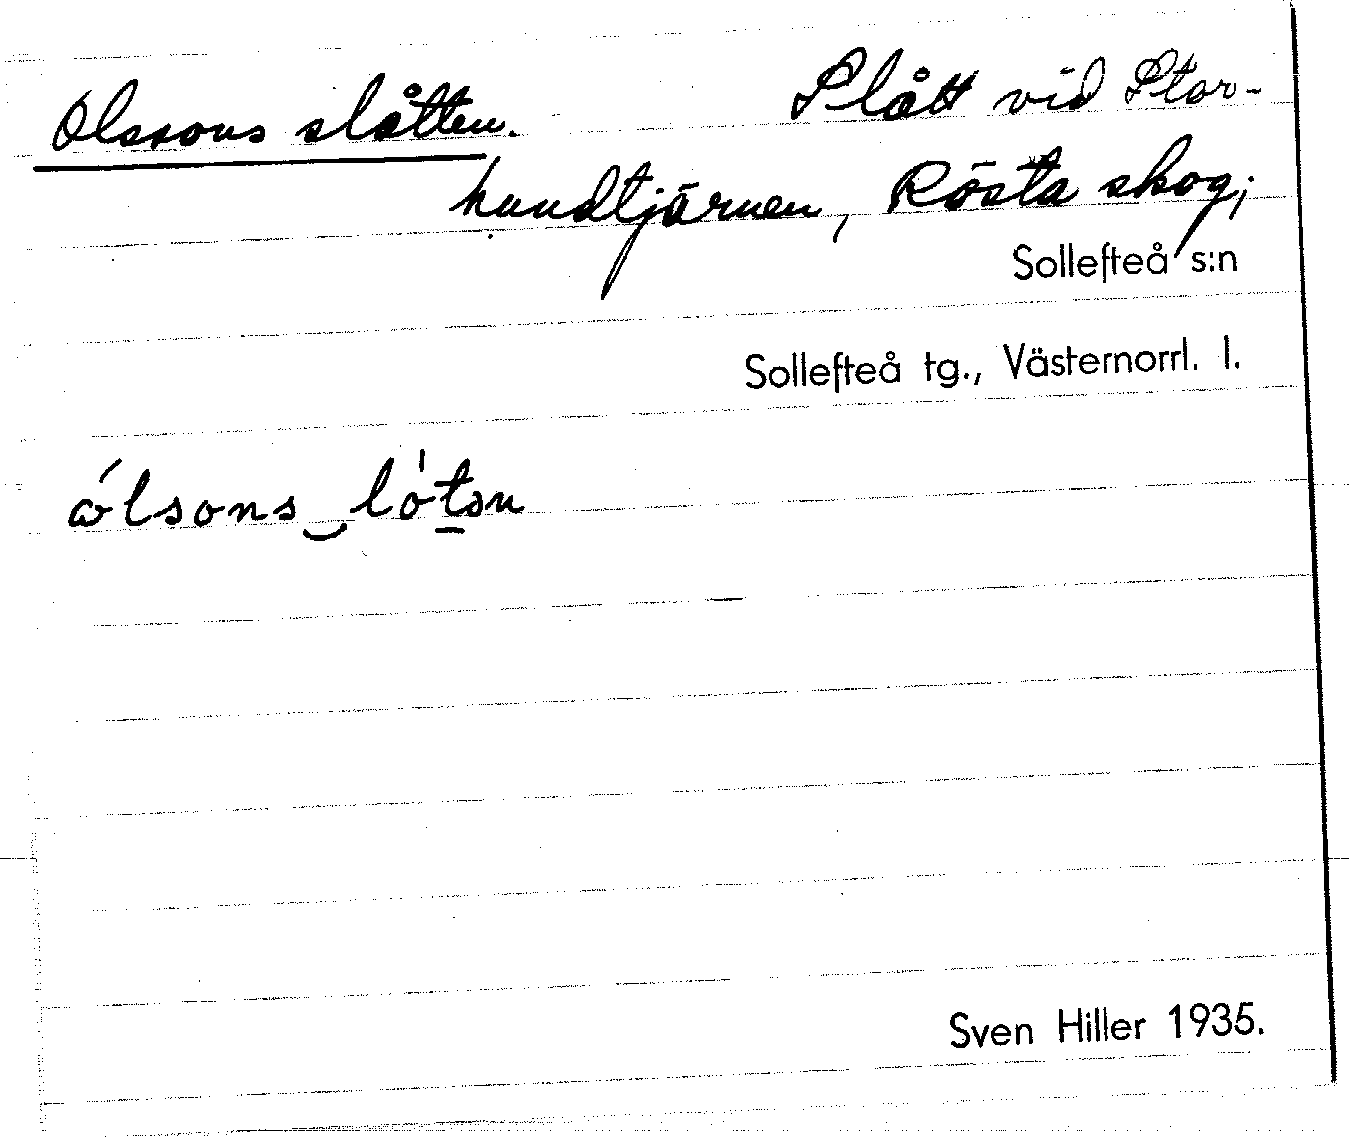 Olssons slåtten. Slått vid Stor-
hundtjärnen, Rösta skog;
Sollefteå s:n
Sollefteå tg., Västernorrl. l.
ólsons‿lót̠ən
Sven Hiller 1935.